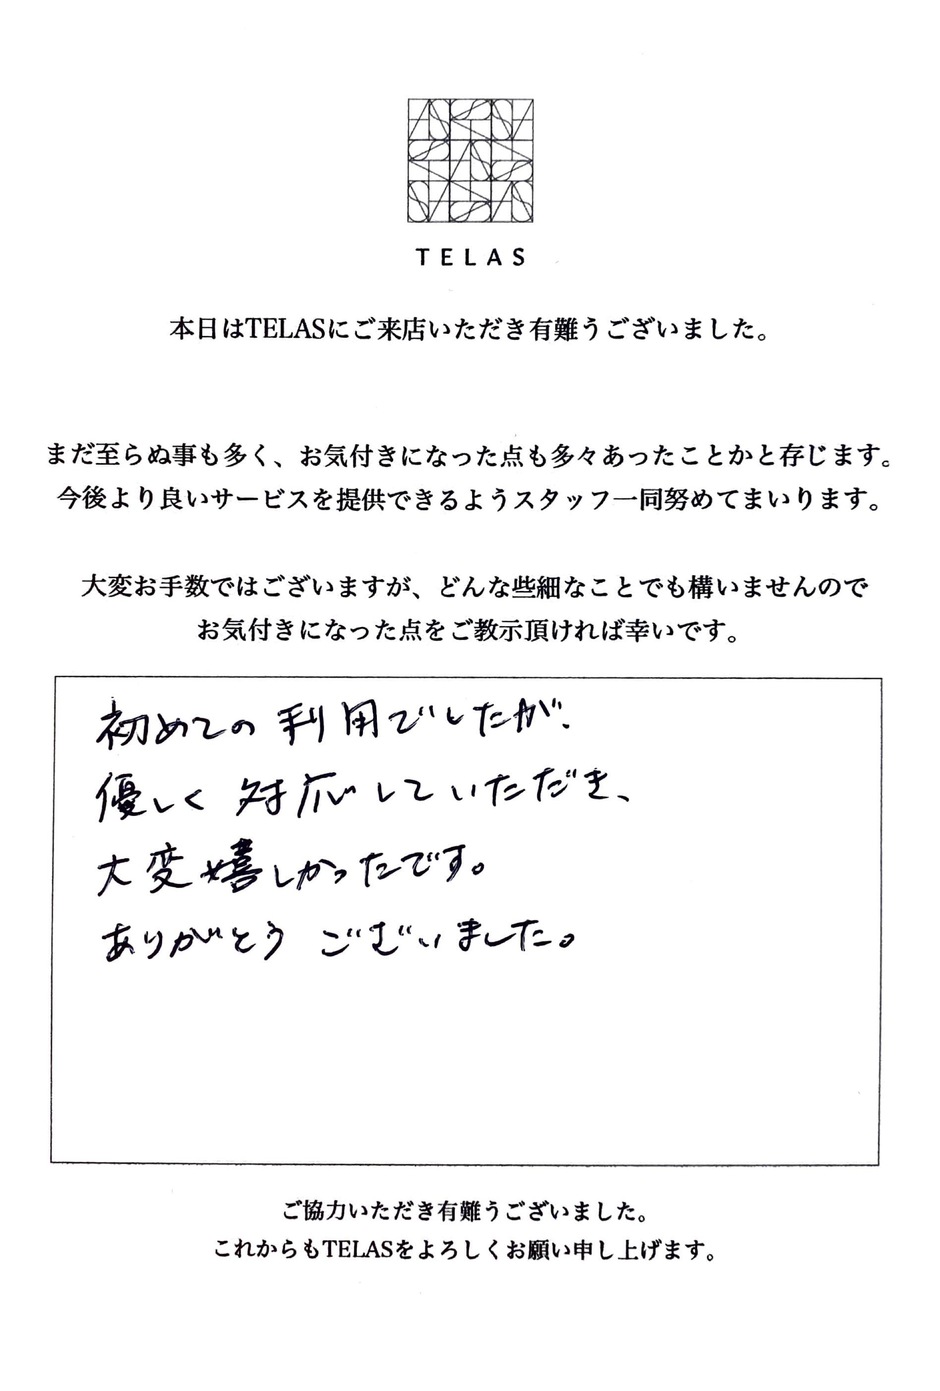 TELAS
本日はTELASにご来店いただき有難うございました。
まだ至らぬ事も多く、お気付きになった点も多々あったことかと存じます。
今後より良いサービスを提供できるようスタッフ一同努めてまいります。
大変お手数ではございますが、どんな些細なことでも構いませんので
お気付きになった点をご教示頂ければ幸いです。
初めての利用でしたが、
優しく対応していただき、
大変嬉しかったです。
ありがとうございました。
ご協力いただき有難うございました。
これからもTELASをよろしくお願い申し上げます。